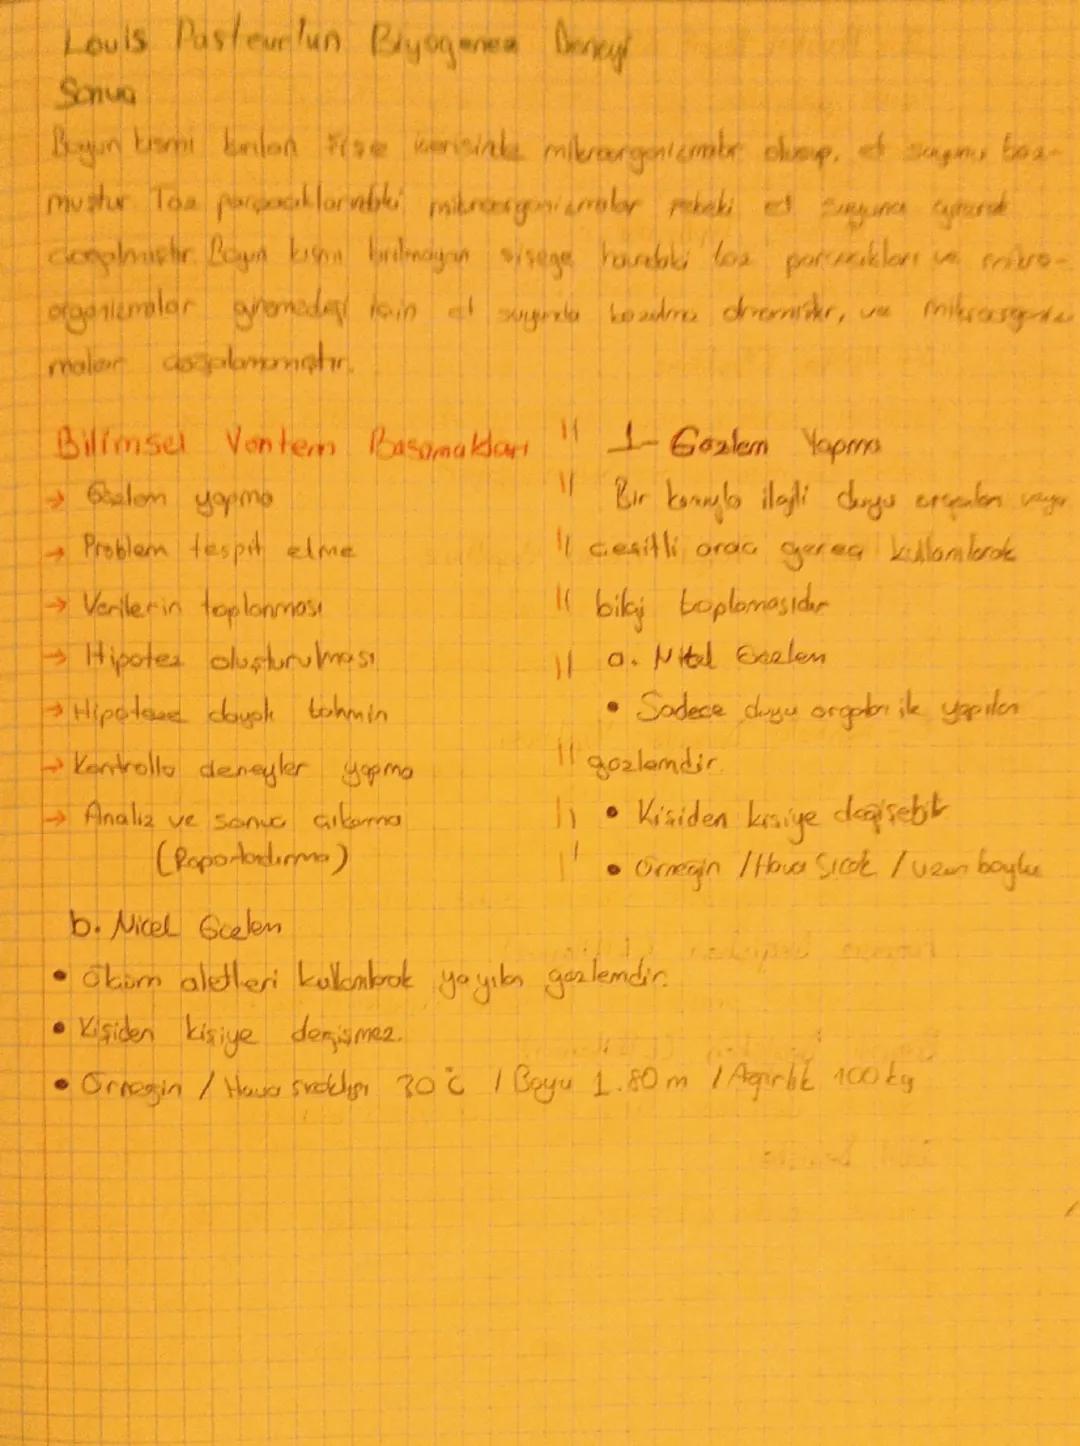 Louis Pasteur'un Biyogenez Deneyi
Sonuç
Boyun kısmı kırılan şişe içerisinde mikroorganizmalar oluşup, et suyunu boz-
muştur Toz parçacıklarındaki mikroorganizmalar et suyuna girerek
çoğalmıştır. Boyun kısmı kırılmayan şişeye havadaki toz parçacıkları ve mikro-
organizmalar giremediği için et suyunda bozulma olmamıştır, ve mikroorganiz
malar çoğalamamıştır.
Bilimsel Yöntem Basamakları
→ Gözlem yapma
→ Problem tespit etme
→ Verilerin toplanması
→ Hipotez oluşturulması
→ Hipoteze dayalı tahmin
→ Kontrollü deneyler yapma
→ Analiz ve sonuç çıkarma
(Raporlandırma)
1- Gözlem Yapma
Bir konuyla ilgili duyu organları veya
çeşitli araç gereç kullanılarak
bilgi toplamasıdır
a. Nitel Gözlem
• Sadece duyu organları ile yapılan
gözlemdir.
• Kişiden kişiye değişebilir
• Örneğin / Hava Sıcak / Uzun boylu
b. Nicel Gözlem
• Ölçüm aletleri kullanılarak yayılan gözlemdir.
• Kişiden kişiye değişmez.
• Örneğin / Hava sıcaklığı 30°C / Boyu 1.80 m / Ağırlık 100 kg